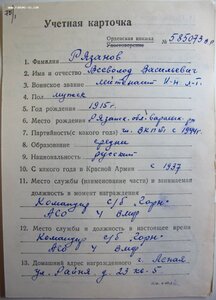 Учетная карточка
Орденская книжка № 585073
Удостоверение
1. Фамилия Рязанов
2. Имя и отчество Всеволод Васильевич
3. Воинское звание лейтенант
4. Пол мужск
5. Год рождения 1915 г.
6. Место рождения Рязанс. обл.
7. Партийность (с какого года) чл. ВКП(б) с 1944 г.
8. Образование средн
9. Национальность русский
10. С какого года в Красной Армии с 1937
11. Место службы (наименование части) и занимаемая
должность в момент награждения
Командир с/б „Горн“
АСО ЧВМФ
12. Место службы и должность в настоящее время
Командир с/б „Горн“
АСО ЧВМФ
13. Домашний адрес награжденного